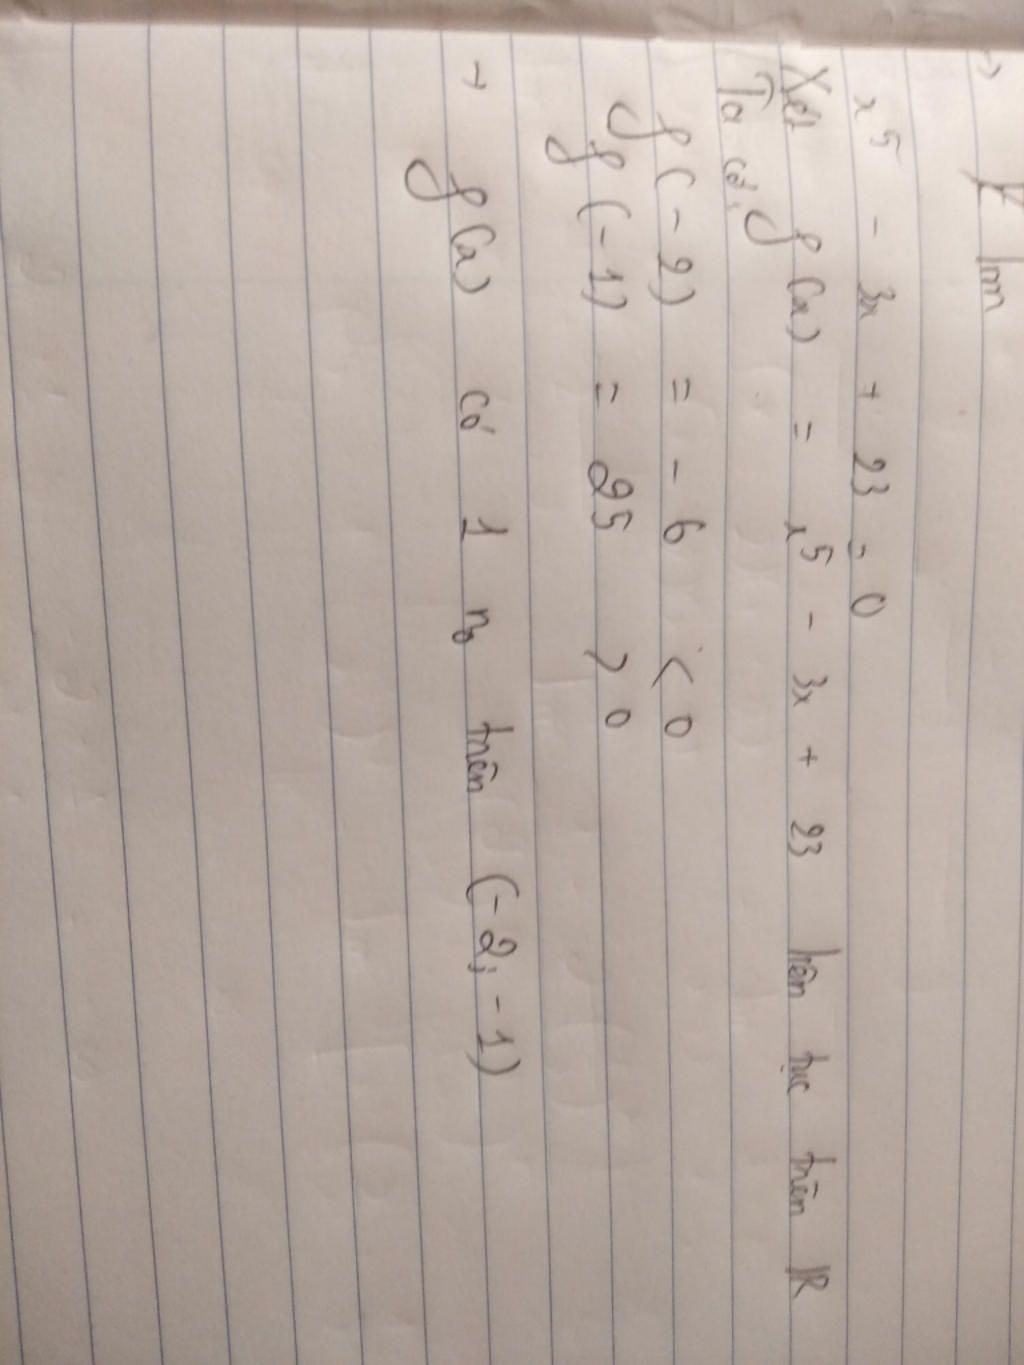 x⁵ - 3x + 23 = 0
Xét f(x) = x⁵ - 3x + 23 liên tục trên ℝ
Ta có:
f(-2) = -6 < 0
f(-1) = 25 > 0
→ f(x) có 1 no trên (-2; -1)